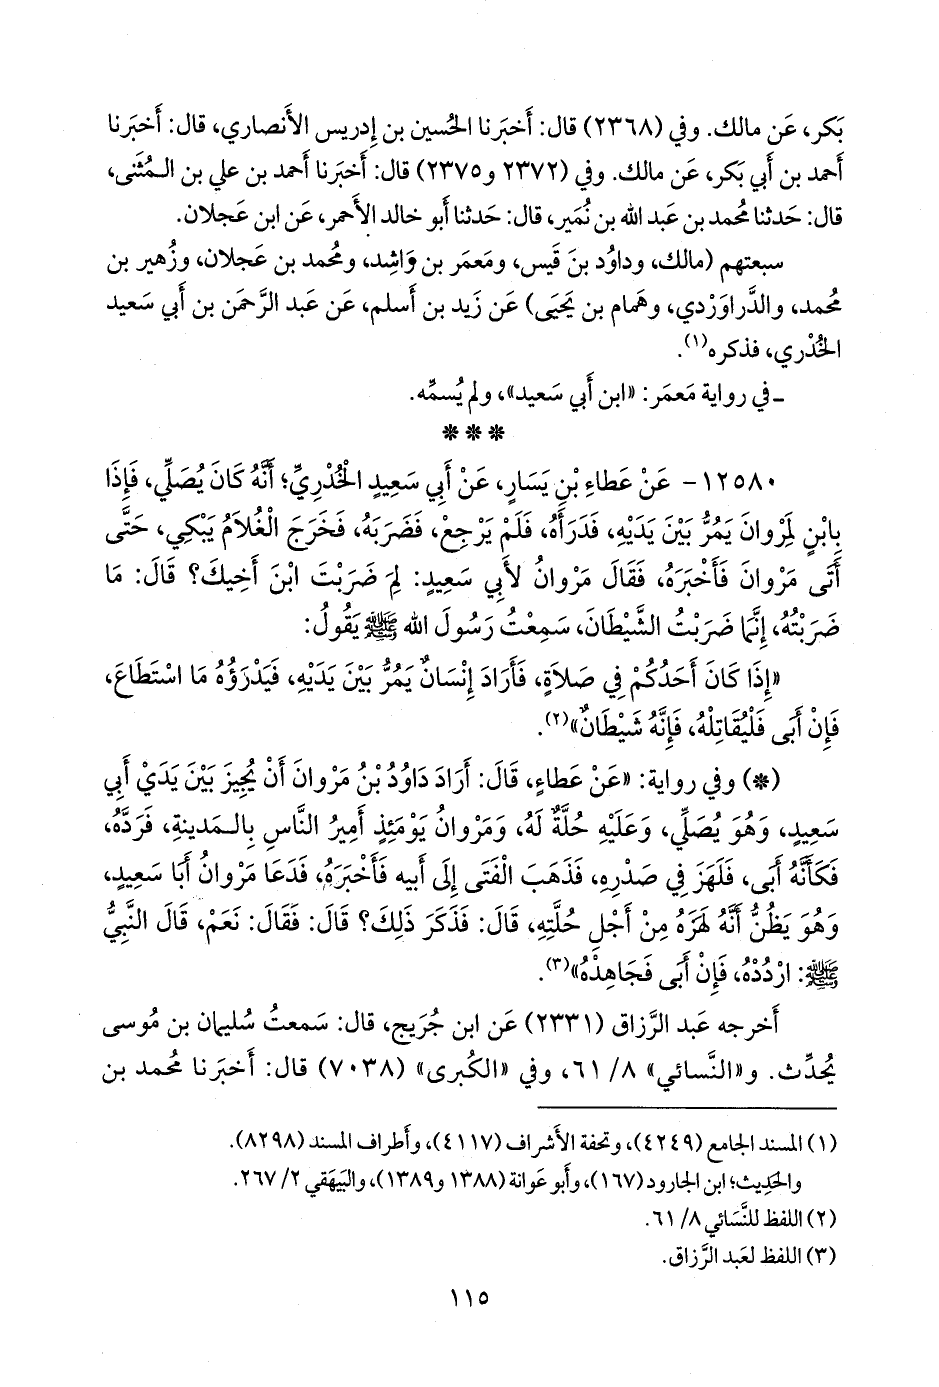 بَكر، عَن مالك. وفي (٢٣٦٨) قال: أَخبَرنا الحُسين بن إِدريس الأَنصاري، قال: أَخبَرنا
أَحمد بن أَبي بَكر، عَن مالك. وفي (٢٣٧٢ و٢٣٧٥) قال: أَخبَرنا أَحمد بن علي بن الـمُثَنى،
قال: حَدثنا مُحمد بن عَبد الله بن نُمَير، قال: حَدثنا أَبو خالد الأَحمر، عَن ابن عَجلان.
سبعتهم (مالك، وداوُد بنَ قَيس، ومَعمَر بن وَاشد، ومُحمد بن عَجلان، وزُهير بن
مُحمد، والدَّراوَرْدي، وهَمام بن يَحيَى) عَن زَيد بن أَسلم، عَن عَبد الرَّحمَن بن أَبي سَعيد
الخُدْري، فذكره(١).
ـ في رواية مَعمَر: «ابن أَبي سَعيد»، ولم يُسمِّه.
* * *
١٢٥٨٠- عَنْ عَطاءِ بْنِ يَسَارٍ، عَنْ أَبِي سَعِيدٍ الْخُدْرِيِّ؛ أَنَّهُ كَانَ يُصَلِّي، فَإِذَا
بِابْنٍ لِمَرْوانَ يَمُرُّ بَيْنَ يَدَيْهِ، فَدَرَأَهُ، فَلَمْ يَرْجِعْ، فَضَرَبَهُ، فَخَرَجَ الْغُلَامُ يَبْكِي، حَتَّى
أَتَى مَرْوانَ فَأَخْبَرَهُ، فَقَالَ مَرْوانُ لأَبِي سَعِيدٍ: لِمَ ضَرَبْتَ ابْنَ أَخِيكَ؟ قَالَ: مَا
ضَرَبْتُهُ، إِنَّمَا ضَرَبْتُ الشَّيْطَانَ، سَمِعْتُ رَسُولَ الله ﷺ يَقُولُ:
«إِذَا كَانَ أَحَدُكُمْ فِي صَلَاةٍ، فَأَرَادَ إِنْسَانٌ يَمُرُّ بَيْنَ يَدَيْهِ، فَيَدْرَؤُهُ مَا اسْتَطَاعَ،
فَإِنْ أَبَى فَلْيُقَاتِلْهُ، فَإِنَّهُ شَيْطَانٌ»(٢).
(*) وفي رواية: «عَنْ عَطاءٍ، قَالَ: أَرَادَ دَاوُدُ بْنُ مَرْوانَ أَنْ يُجِيزَ بَيْنَ يَدَيْ أَبِي
سَعِيدٍ، وَهُوَ يُصَلِّي، وَعَلَيْهِ حُلَّةٌ لَهُ، وَمَرْوانُ يَوْمَئِذٍ أَمِيرُ النَّاسِ بِالـمَدينةِ، فَرَدَّهُ،
فَكَأَنَّهُ أَبَى، فَلَهَزَ فِي صَدْرِهِ، فَذَهَبَ الْفَتَى إِلَى أَبيه فَأَخْبَرَهُ، فَدَعَا مَرْوانُ أَبَا سَعِيدٍ،
وَهُوَ يَظُنُّ أَنَّهُ لَهَزَهُ مِنْ أَجْلِ حُلَّتِهِ، قَالَ: فَذَكَرَ ذَلِكَ؟ قَالَ: فَقَالَ: نَعَمْ، قَالَ النَّبِيُّ
ﷺ: ارْدُدْهُ، فَإِنْ أَبَى فَجَاهِدْهُ»(٣).
أَخرجه عَبد الرَّزاق (٢٣٣١) عَن ابن جُرَيج، قال: سَمعتُ سُليمان بن مُوسى
يُحدِّث. و«النَّسائي» ٨/ ٦١، وفي «الكُبرى» (٧٠٣٨) قال: أَخبَرنا مُحمد بن
(١) المسند الجامع (٤٢٤٩)، وتحفة الأَشراف (٤١١٧)، وأَطراف المسند (٨٢٩٨).
والحَدِيث؛ ابن الجارود (١٦٧)، وأَبو عَوانة (١٣٨٨ و١٣٨٩)، والبَيهَقي ٢/ ٢٦٧.
(٢) اللفظ للنَّسَائي ٨/ ٦١.
(٣) اللفظ لعَبد الرَّزاق.
١١٥